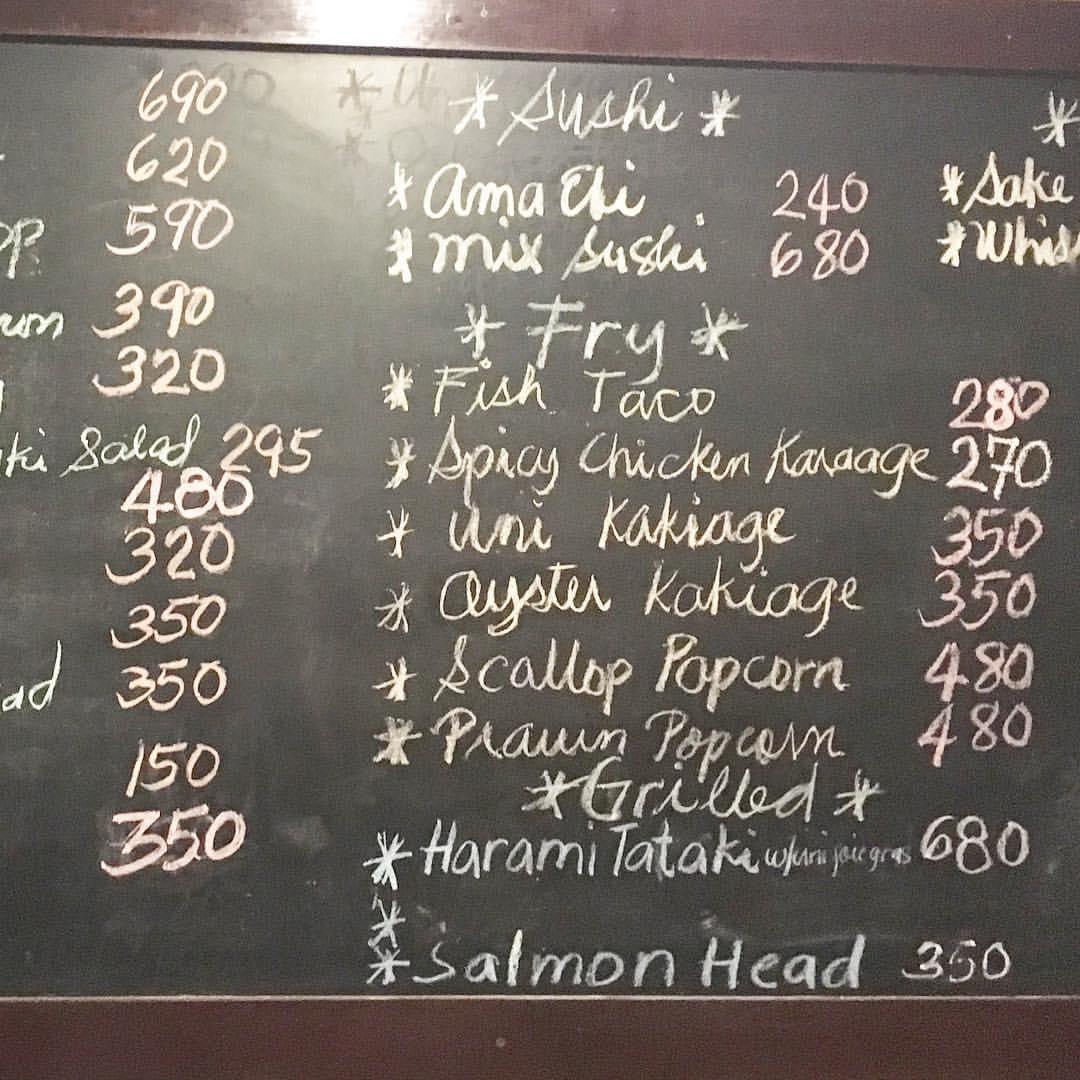 690
620
590
390
320
Salad 295
480
320
350
350
150
350
* Sushi *
* Ama Ebi 240
* Mix Sushi 680
* Fry *
* Fish Taco 280
* Spicy Chicken Karaage 270
* Uni Kakiage 350
* Oyster Kakiage 350
* Scallop Popcorn 480
* Prawn Popcorn 480
* Grilled *
* Harami Tataki w/uni foie gras 680
*
* Salmon Head 350
*
* Sake
* Whis